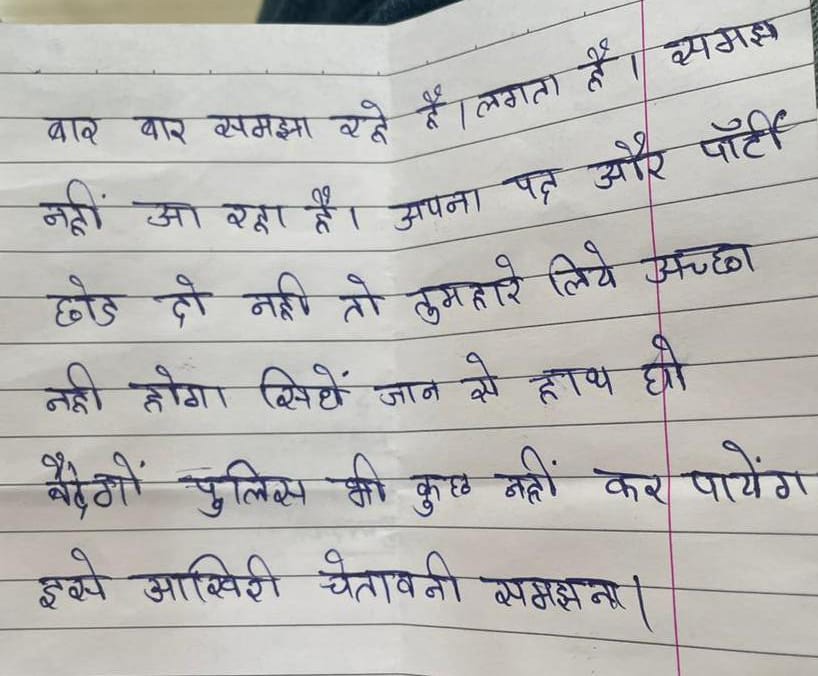 बार बार समझा रहे हैं। लगता है। समझ
नहीं आ रहा है। अपना पद और पॉर्टी
छोड दो नही तो तुमहारे लिये अच्छा
नही होगा सिधें जान से हाथ धो
बैठेगों पुलिस भी कुछ नहीं कर पायेंग
इसे आखिरी चेतावनी समझना।